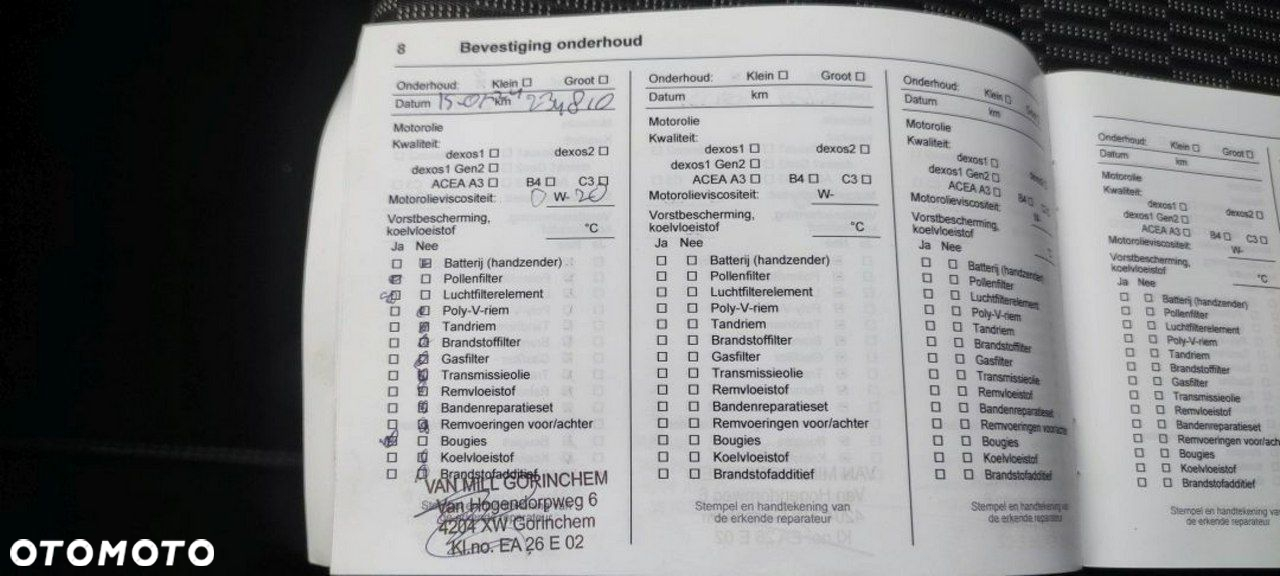 8 Bevestiging onderhoud
Onderhoud: Klein Groot
Datum km 234810
Motorolie
Kwaliteit:
dexos1 dexos2
dexos1 Gen2
ACEA A3 B4 C3
Motorolieviscositeit: 0 W- 20
Vorstbescherming,
koelvloeistof °C
Ja Nee
Batterij (handzender)
Pollenfilter
Luchtfilterelement
Poly-V-riem
Tandriem
Brandstoffilter
Gasfilter
Transmissieolie
Remvloeistof
Bandenreparatieset
Remvoeringen voor/achter
Bougies
Koelvloeistof
Brandstofadditief
VAN MILL GORINCHEM
Van Hogendorpweg 6
4204 XW Gorinchem
Kl.no. EA 26 E 02
Onderhoud: Klein Groot
Datum km
Motorolie
Kwaliteit:
dexos1 dexos2
dexos1 Gen2
ACEA A3 B4 C3
Motorolieviscositeit: W-
Vorstbescherming,
koelvloeistof °C
Ja Nee
Batterij (handzender)
Pollenfilter
Luchtfilterelement
Poly-V-riem
Tandriem
Brandstoffilter
Gasfilter
Transmissieolie
Remvloeistof
Bandenreparatieset
Remvoeringen voor/achter
Bougies
Koelvloeistof
Brandstofadditief
Stempel en handtekening van
de erkende reparateur
Onderhoud: Klein
Datum km
Motorolie
Kwaliteit:
dexos1
dexos1 Gen2
ACEA A3 B4 C3
Motorolieviscositeit: W-
Vorstbescherming,
koelvloeistof
Ja Nee
Batterij (handzender)
Pollenfilter
Luchtfilterelement
Poly-V-riem
Tandriem
Brandstoffilter
Gasfilter
Transmissieolie
Remvloeistof
Bandenreparatieset
Remvoeringen voor/achter
Bougies
Koelvloeistof
Brandstofadditief
Stempel en handtekening van
de erkende reparateur
Onderhoud: Klein Groot
Datum km
Motorolie
Kwaliteit:
dexos1 dexos2
dexos1 Gen2
ACEA A3 B4 C3
Motorolieviscositeit: W-
Vorstbescherming,
koelvloeistof °C
Ja Nee
Batterij (handzender)
Pollenfilter
Luchtfilterelement
Poly-V-riem
Tandriem
Brandstoffilter
Gasfilter
Transmissieolie
Remvloeistof
Bandenreparatieset
Remvoeringen voor/achter
Bougies
Koelvloeistof
Brandstofadditief
Stempel en handtekening van
de erkende reparateur
OTOMOTO